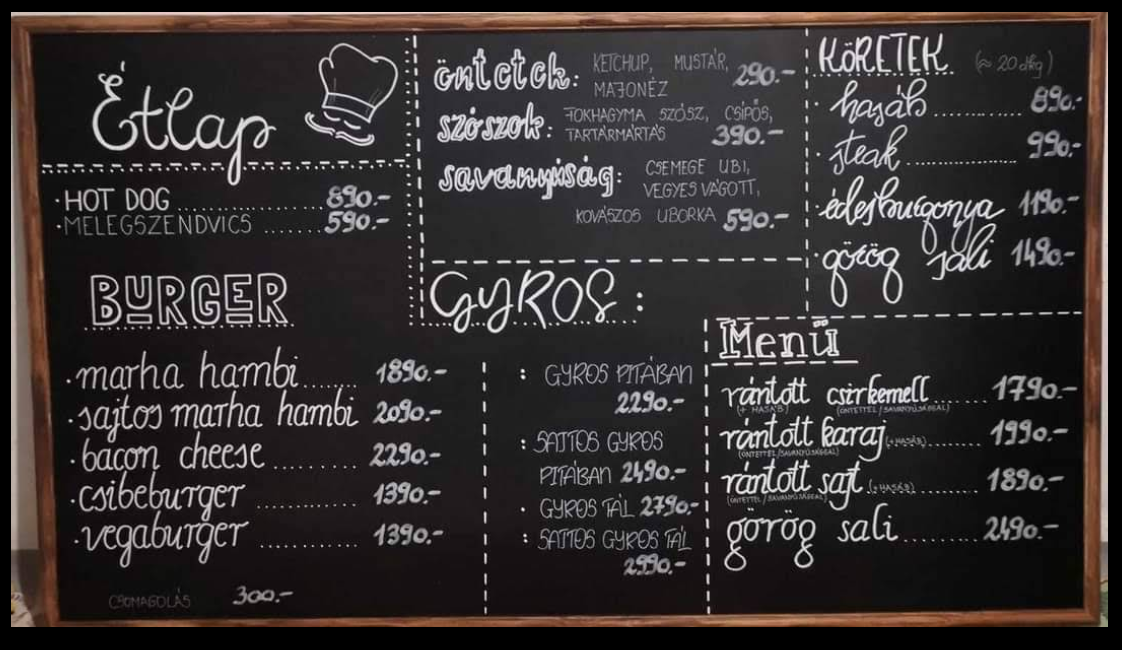 Étlap
· HOT DOG ........ 890.-
· MELEGSZENDVICS ....... 590.-
BURGER
· marha hambi....... 1890.-
· sajtos marha hambi 2090.-
· bacon cheese .......... 2290.-
· csibeburger .......... 1390.-
· vegaburger ............ 1390.-
CSOMAGOLÁS 300.-
öntetek: KETCHUP, MUSTÁR, 290.-
MAJONÉZ
szószok: FOKHAGYMA SZÓSZ, CSÍPŐS,
TARTÁRMÁRTÁS 390.-
savanyúság: CSEMEGE UBI,
VEGYES VÁGOTT,
KOVÁSZOS UBORKA 590.-
GYROS:
: GYROS PITÁBAN
2290.-
: SAJTOS GYROS
PITÁBAN 2490.-
· GYROS TÁL 2790.-
: SAJTOS GYROS TÁL
2990.-
KÖRETEK (≈ 20 dkg)
· hasáb ............ 890.-
· steak ............... 990.-
· édesburgonya 1190.-
· görög sali 1490.-
Menü
rántott csirkemell ....... 1790.-
(+ HASÁB) (ÖNTETTEL/SAVANYÚSÁGGAL)
rántott karaj (+HASÁB) ....... 1990.-
(ÖNTETTEL/SAVANYÚSÁGGAL)
rántott sajt (+HASÁB) ....... 1890.-
(ÖNTETTEL/SAVANYÚSÁGGAL)
görög sali ......... 2490.-